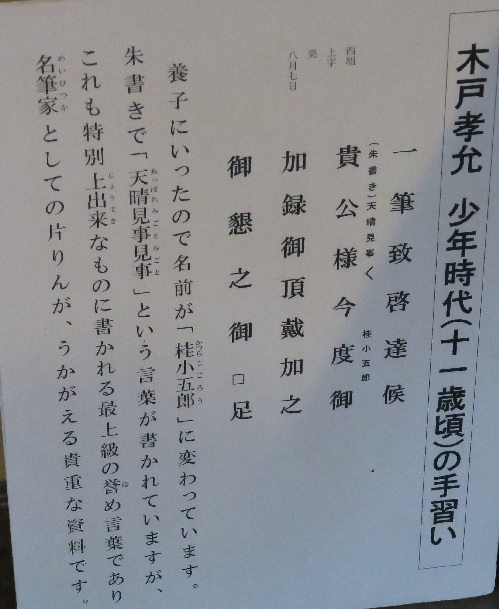 木戸孝允 少年時代(十一歳頃)の手習い
一筆致啓達候
(朱書き)天晴見事く 桂小五郎
貴公様今度御
加録御頂戴加之
御懇之御□足
八月七日
上字
養子にいったので名前が「桂小五郎」に変わっています。
朱書きで「天晴見事見事」という言葉が書かれていますが、
これも特別上出来なものに書かれる最上級の誉め言葉であり
名筆家としての片りんが、うかがえる貴重な資料です。